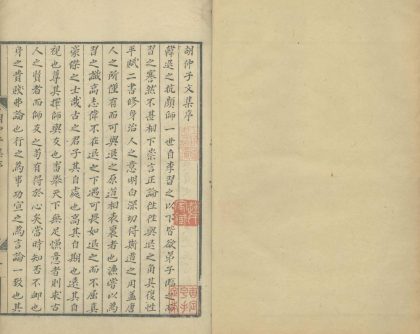 胡仲子文集序
韓退之抗顏師一世自李習之以下皆欲弟子臨之而
習之蹇然不甚相下崇言正論往往與退之角其復性
平賦二書修身治人之意明白深切得斯道之用蓋唐
人之所僅有而可與退之原道相表裏者也濂嘗以為
習之識高志偉不在退之下遇可畏如退之而不屈真
豪傑之士哉古之君子其自處也高其自期也遠其自
視也尊其擇師與友也審舉天下無足慊意者則求古
人之賢者而師友之苟有得於心矣當時知否不卹也
身之貴賤弗論也行之為事功宣之為言論一致也其